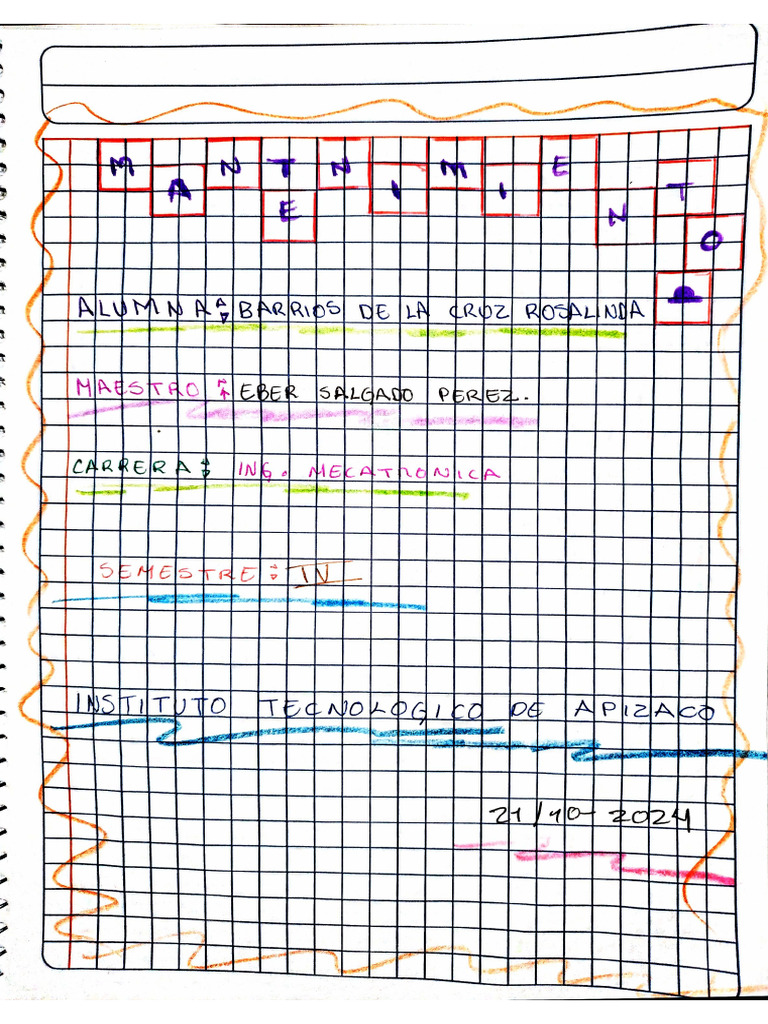 MANTENIMIENTO
ALUMNA: BARRIOS DE LA CRUZ ROSALINDA
MAESTRO: EBER SALGADO PEREZ.
CARRERA: ING. MECATRONICA
SEMESTRE: IV
INSTITUTO TECNOLOGICO DE APIZACO
21/10-2024